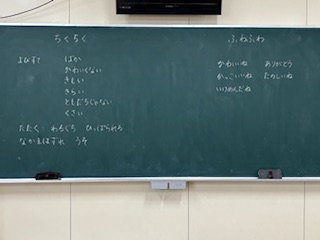 ちくちく
よびすて　ばか
かわいくない
きしい
きらい
ともだちじゃない
くさい
たたく　わるぐち　ひっぱられる
なかまはずれ　うそ
ふわふわ
かわいいね　ありがとう
かっこいいね　たのしいね
いけめんだね